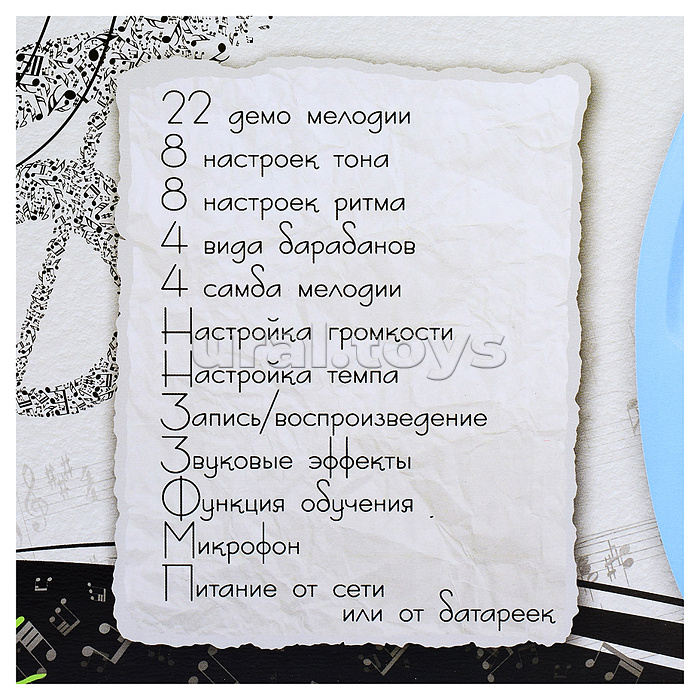 22 демо мелодии
8 настроек тона
8 настроек ритма
4 вида барабанов
4 самба мелодии
Настройка громкости
ural.toys
Настройка темпа
Запись/воспроизведение
Звуковые эффекты
Функция обучения
Микрофон
Питание от сети
или от батареек